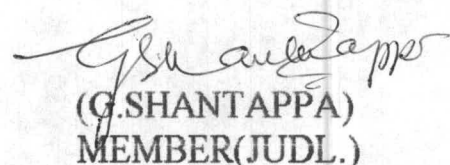 G.Shantappa
(G.SHANTAPPA)
MEMBER(JUDL.)